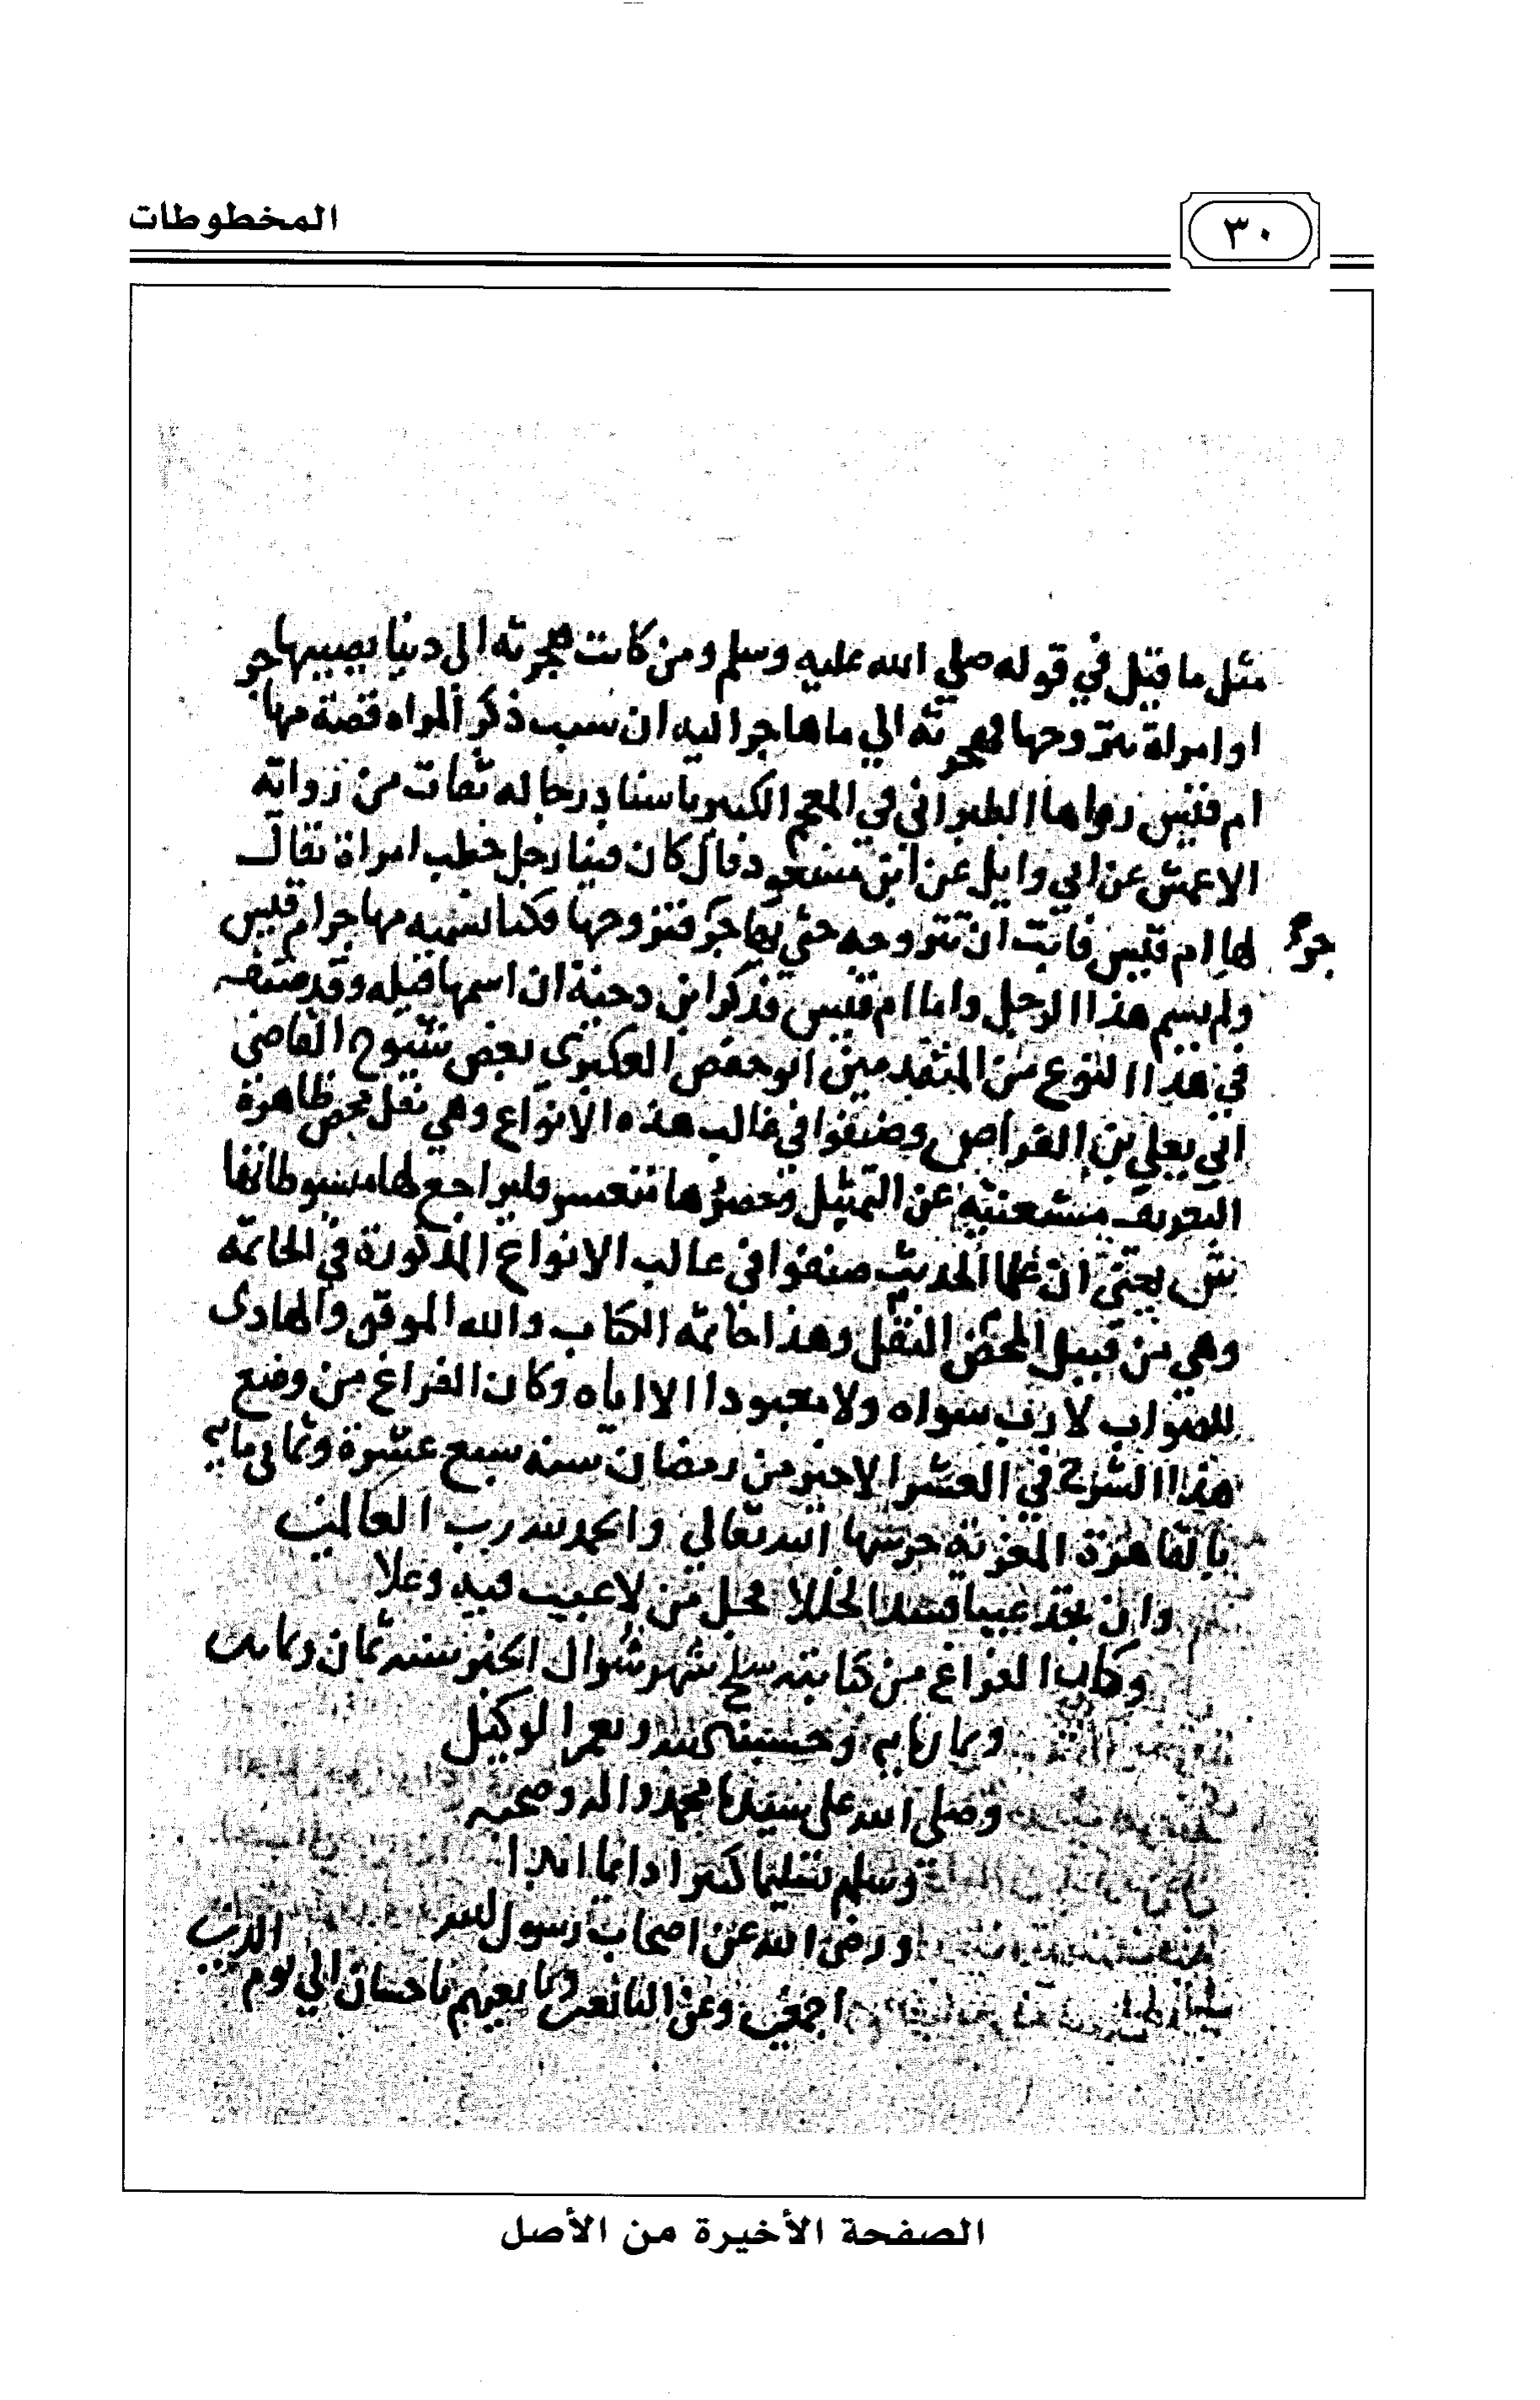 المخطوطات
٣٠
مثل ما قيل في قوله صلي الله عليه وسلم ومن كانت هجرته الى دنيا يصيبها
او امراة يتزوجها فهجرته الي ما هاجر اليه ان سبب ذكر المراه قصة مهاجر
ام قيس رواها الطبراني في المعجم الكبير باسناد رجاله ثقات من رواية
الاعمش عن ابي وايل عن ابن مسعود قال كان فينا رجل خطب امراة يقال
لها ام قيس فابت ان تتزوجه حتي يهاجر فتزوجها فكنا نسميه مهاجر ام قيس
ولم يسم هذا الرجل واما ام قيس فذكر ابن دحية ان اسمها قيله وقد صنف
في هذا النوع من المتقدمين ابو حفص العكبري بعض شيوخ القاضي
ابي يعلي بن الفراص وصنفوا في غالب هذه الانواع وهي نقل محض ظاهرة
التعريف مستغنية عن التمثيل وحصرها متعسر فليراجع لها مبسوطاتها
ش يعني ان علما الحديث صنفوا في غالب الانواع المذكورة في الخاتمة
وهي من قبيل المحض النقل وهذا خاتمة الكتاب والله الموفق والهادى
للصواب لا رب سواه ولا معبودا الا اياه وكان الفراغ من وضع
هذا الشرح في العشر الاخير من رمضان سنة سبع عشرة وثماني ماية
بالقاهرة المعزية حرسها الله تعالي والحمد لله رب العالمين
وان تجد عيبا فسد الخللا فجل من لا عيب فيه وعلا
وكان الفراغ من كتابته سلخ شهر شوال سنة ثمان وثمانين
وثمانمايه وحسبنا الله ونعم الوكيل
وصلي الله على سيدنا محمد واله وصحبه
وسلم تسليما كثيرا دايما ابدا
ورضي الله عن اصحاب رسول الله
اجمعين وعن التابعين وتابعيهم باحسان الي يوم الدين
الصفحة الأخيرة من الأصل